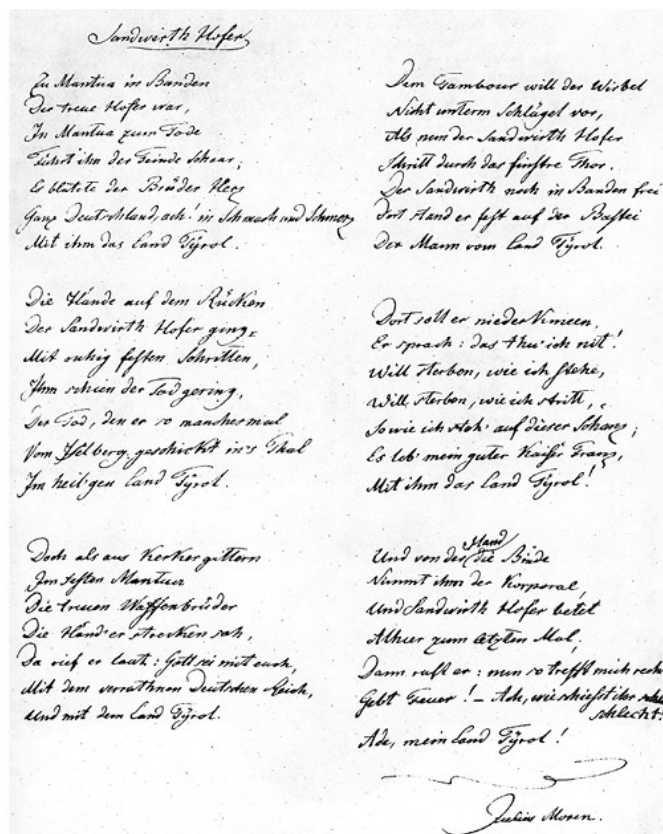 Sandwirth Hofer
Zu Mantua in Banden
Der treue Hofer war,
In Mantua zum Tode
Führt ihn der Feinde Schaar;
Es blutete der Brüder Herz
Ganz Deutschland, ach! in Schmach und Schmerz
Mit ihm das Land Tÿrol.
Die Hände auf dem Rücken
Der Sandwirth Hofer ging,
Mit ruhig festen Schritten,
Ihm schien der Tod gering,
Der Tod, den er so manchesmal
Vom Iselberg geschickt in's Thal
Im heil'gen Land Tÿrol.
Doch als aus Kerkergittern
Im festen Mantua
Die treuen Waffenbrüder
Die Händ' er strecken sah,
Da rief er laut: Gott sei mit euch,
Mit dem verrathnen Deutschen Reich,
Und mit dem Land Tÿrol.
Dem Tambour will der Wirbel
Nicht unterm Schlägel vor,
Als nun der Sandwirth Hofer
Schritt durch das finstre Thor.
Der Sandwirth noch in Banden frei
Dort stand er fest auf der Bastei
Der Mann vom Land Tÿrol.
Dort soll er niederknieen,
Er sprach: das thu' ich nit!
Will sterben, wie ich stehe,
Will sterben, wie ich stritt,
So wie ich steh' auf dieser Schanz;
Es leb' mein guter Kaiser Franz,
Mit ihm das Land Tÿrol!
Und von der Hand die Binde
Nimmt ihm der Korporal,
Und Sandwirth Hofer betet
Allhier zum letzten Mal;
Dann ruft er: nun so trefft mich recht
Gebt Feuer! – Ach, wie schießt ihr
schlecht!
Ade, mein Land Tÿrol!
Julius Mosen.